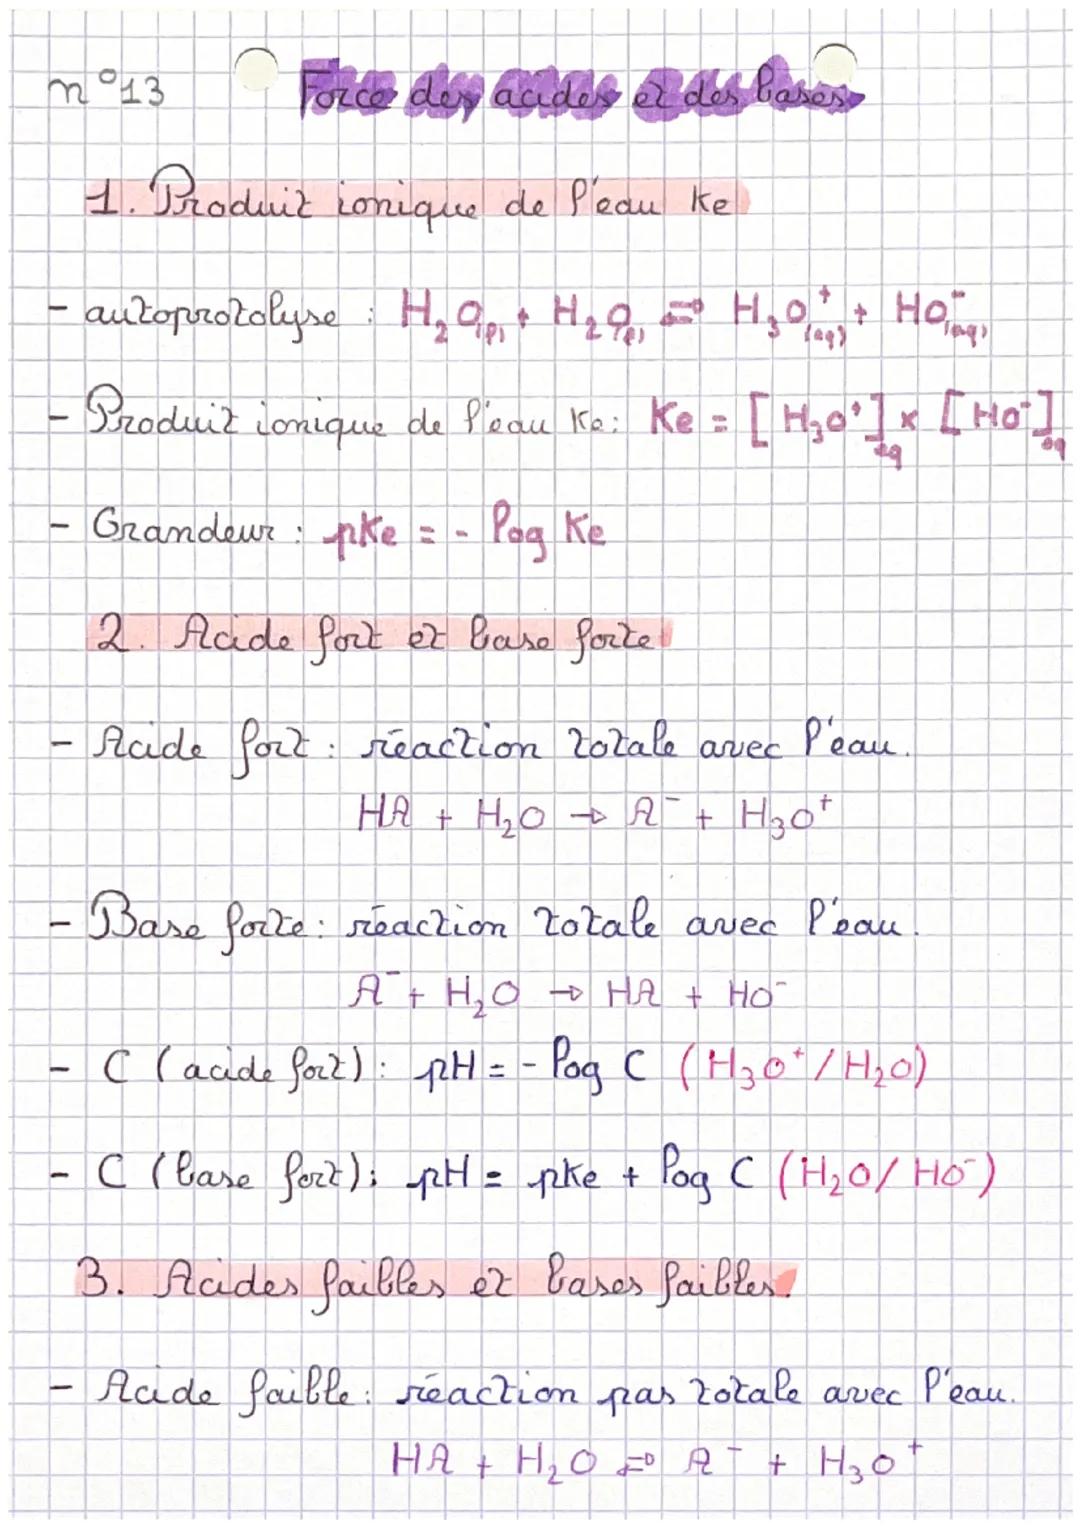 n°13 Force des acides et des bases
1. Produit ionique de l'eau Ke
- autoprotolyse : H₂O(l) + H₂O(l) ⇌ H₃O⁺(aq) + HO⁻(aq)
- Produit ionique de l'eau Ke : Ke = [H₃O⁺]éq × [HO⁻]éq
- Grandeur : pKe = - log Ke
2. Acide fort et base forte
- Acide fort : réaction totale avec l'eau.
HA + H₂O → A⁻ + H₃O⁺
- Base forte : réaction totale avec l'eau.
A⁻ + H₂O → HA + HO⁻
- C (acide fort) : pH = - log C (H₃O⁺/H₂O)
- C (base fort) : pH = pKe + log C (H₂O/HO⁻)
3. Acides faibles et bases faibles.
- Acide faible : réaction pas totale avec l'eau.
HA + H₂O ⇌ A⁻ + H₃O⁺